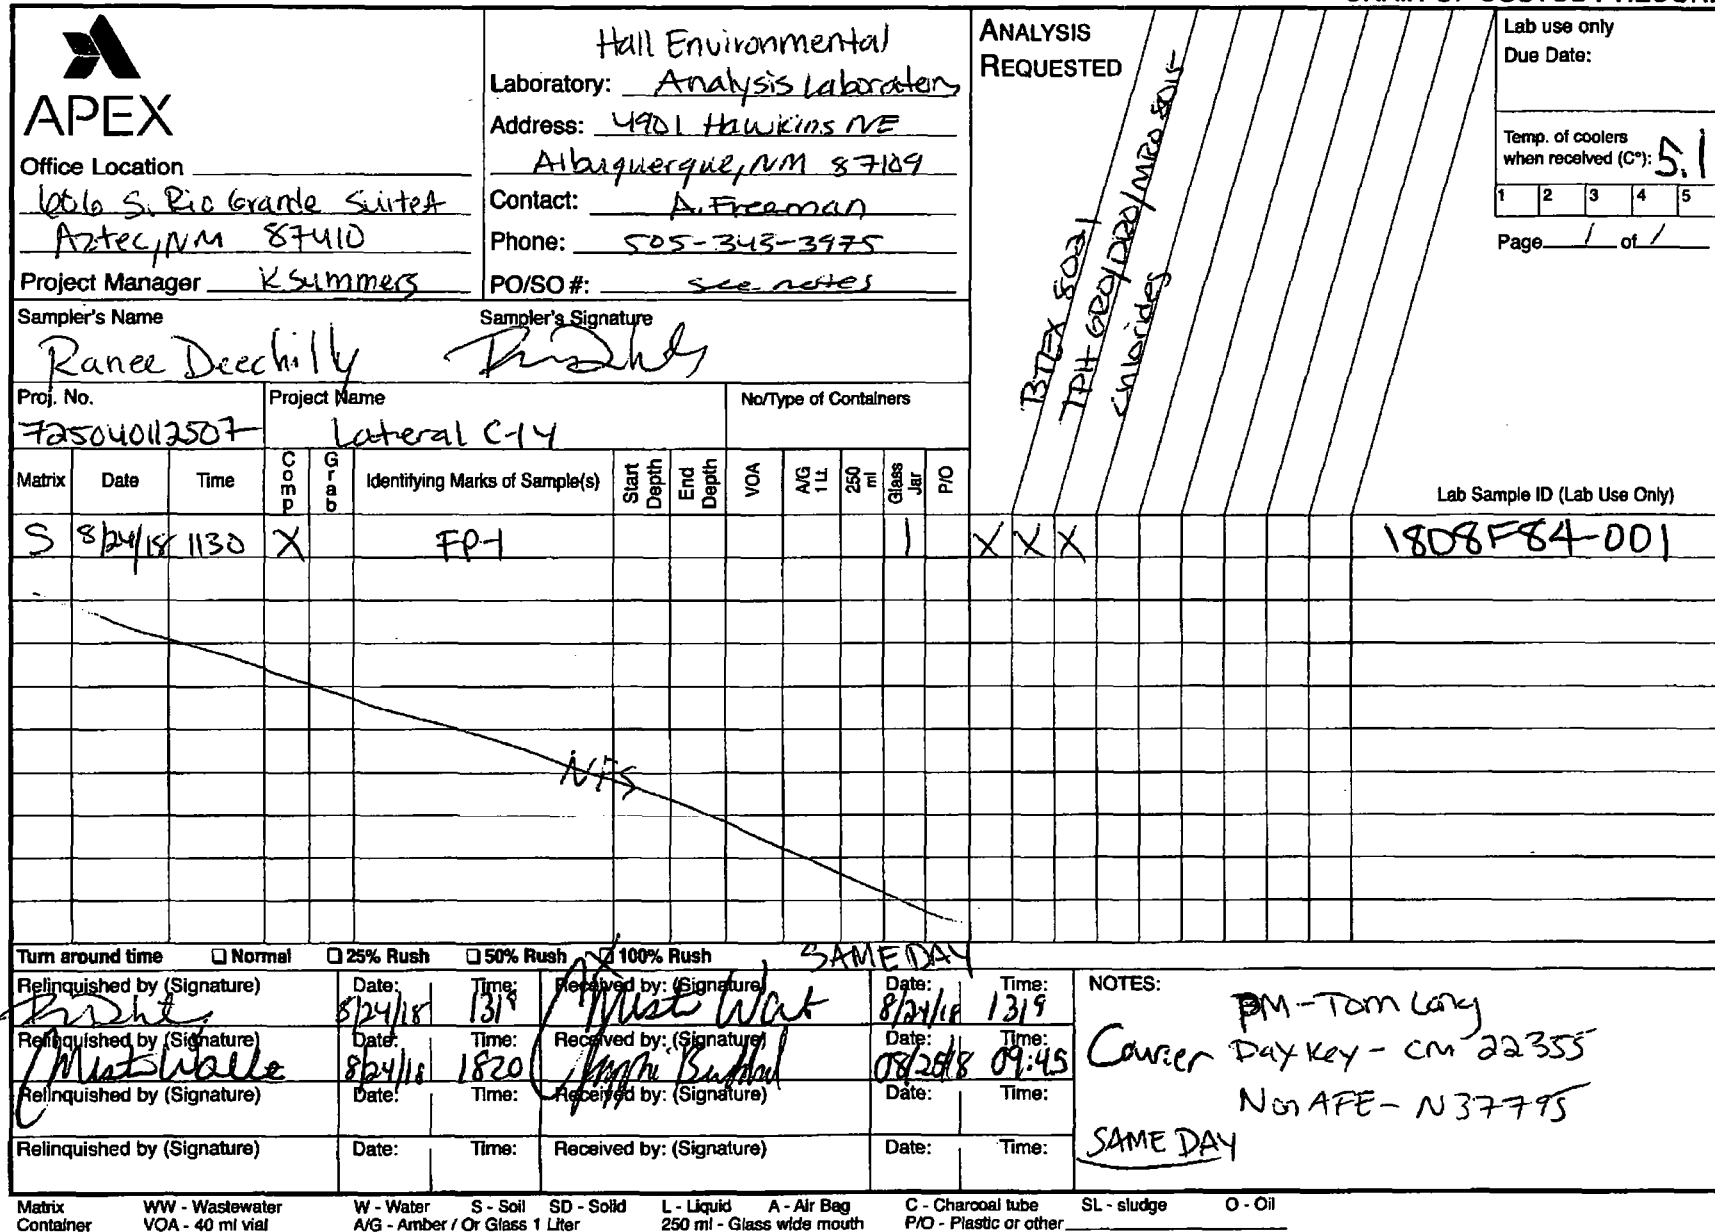 APEX
Office Location
606 S. Rio Grande Suite A
Aztec, NM 87410
Project Manager K Summers
Hall Environmental
Laboratory: Analysis Laboratory
Address: 4901 Hawkins NE
Albuquerque, NM 87109
Contact: A. Freeman
Phone: 505-345-3975
PO/SO #: see notes
Sampler's Name
Ranee Deechilly
Sampler's Signature
ANALYSIS
REQUESTED
BTEX 8021
TPH GRO/DRO/MRO 8015
Chlorides
Lab use only
Due Date:
Temp. of coolers
when received (C°): 5.1
1 2 3 4 5
Page 1 of 1
Proj. No.
725040112507
Project Name
Lateral C-14
No/Type of Containers
Matrix Date Time Comp Grab Identifying Marks of Sample(s) Start Depth End Depth VOA A/G 1 Lt. 250 ml Glass Jar P/O Lab Sample ID (Lab Use Only)
S 8/24/18 1130 X FP-1 1 X X X 1808F84-001
NFS
Turn around time Normal 25% Rush 50% Rush 100% Rush SAME DAY
Relinquished by (Signature) Date: 8/24/18 Time: 1319 Received by: (Signature) Date: 8/24/18 Time: 1319
Relinquished by (Signature) Date: 8/24/18 Time: 1820 Received by: (Signature) Date: 08/25/18 Time: 09:45
Relinquished by (Signature) Date: Time: Received by: (Signature) Date: Time:
Relinquished by (Signature) Date: Time: Received by: (Signature) Date: Time:
NOTES:
PM - Tom Long
Courier Day Key - CM 22355
Non AFE - N37795
SAME DAY
Matrix WW - Wastewater W - Water S - Soil SD - Solid L - Liquid A - Air Bag C - Charcoal tube SL - sludge O - Oil
Container VOA - 40 ml vial A/G - Amber / Or Glass 1 Liter 250 ml - Glass wide mouth P/O - Plastic or other